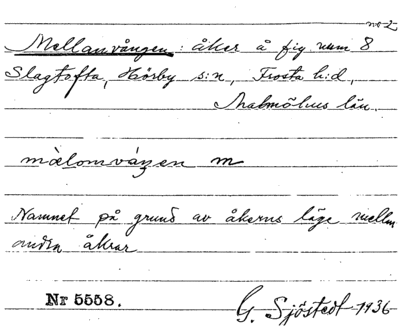 no 2
Mellanvången: åker å fig num 8
Slagtofta, Hörby s:n, Frosta h:d,
Malmöhus län.
mælomváŋen m
Namnet på grund av åkerns läge mellan
andra åkrar
Nr 5558.
G. Sjöstedt 1936